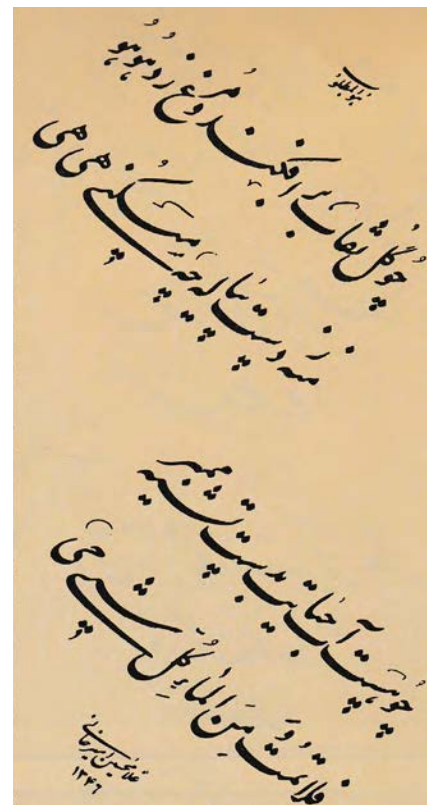 هوالمطلوب
چو گل نقاب برافکند و مرغ زد هوهو
منه ز دست پیاله چه میکنی هی هی
چو هست آب حیاتت بدست تشنه ممیر
فلا تمت وَ مِنَ الماءِ کلُّ شیئٍ حی
غلامحسین امیرخانی
۱۳۴۶